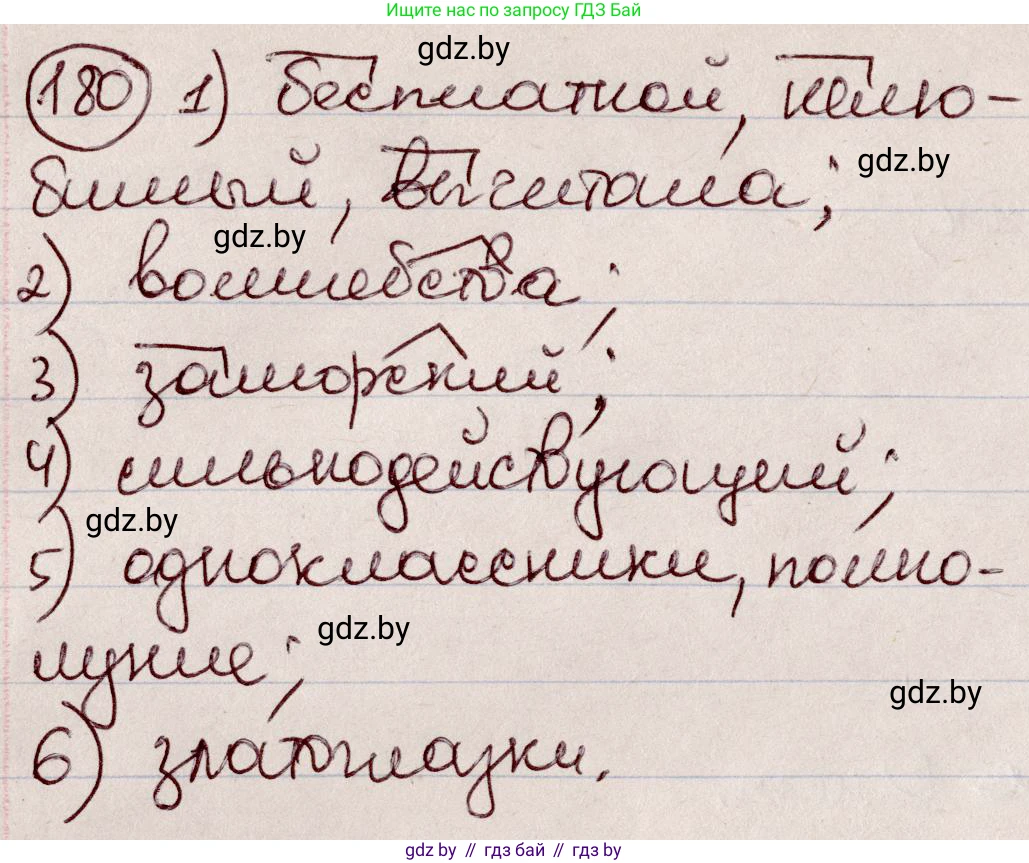 Ищите нас по запросу ГДЗ Бай
gdz.by
180 1) бесплатной, нелю-
бимый, вычитала;
gdz.by
gdz.by
2) волшебства;
3) заморский;
4) сильнодействующий;
gdz.by
5) одноклассники, полно-
gdz.by
луние;
gdz.by
6) златоглазки.
gdz.by // гдз бай // гдз by